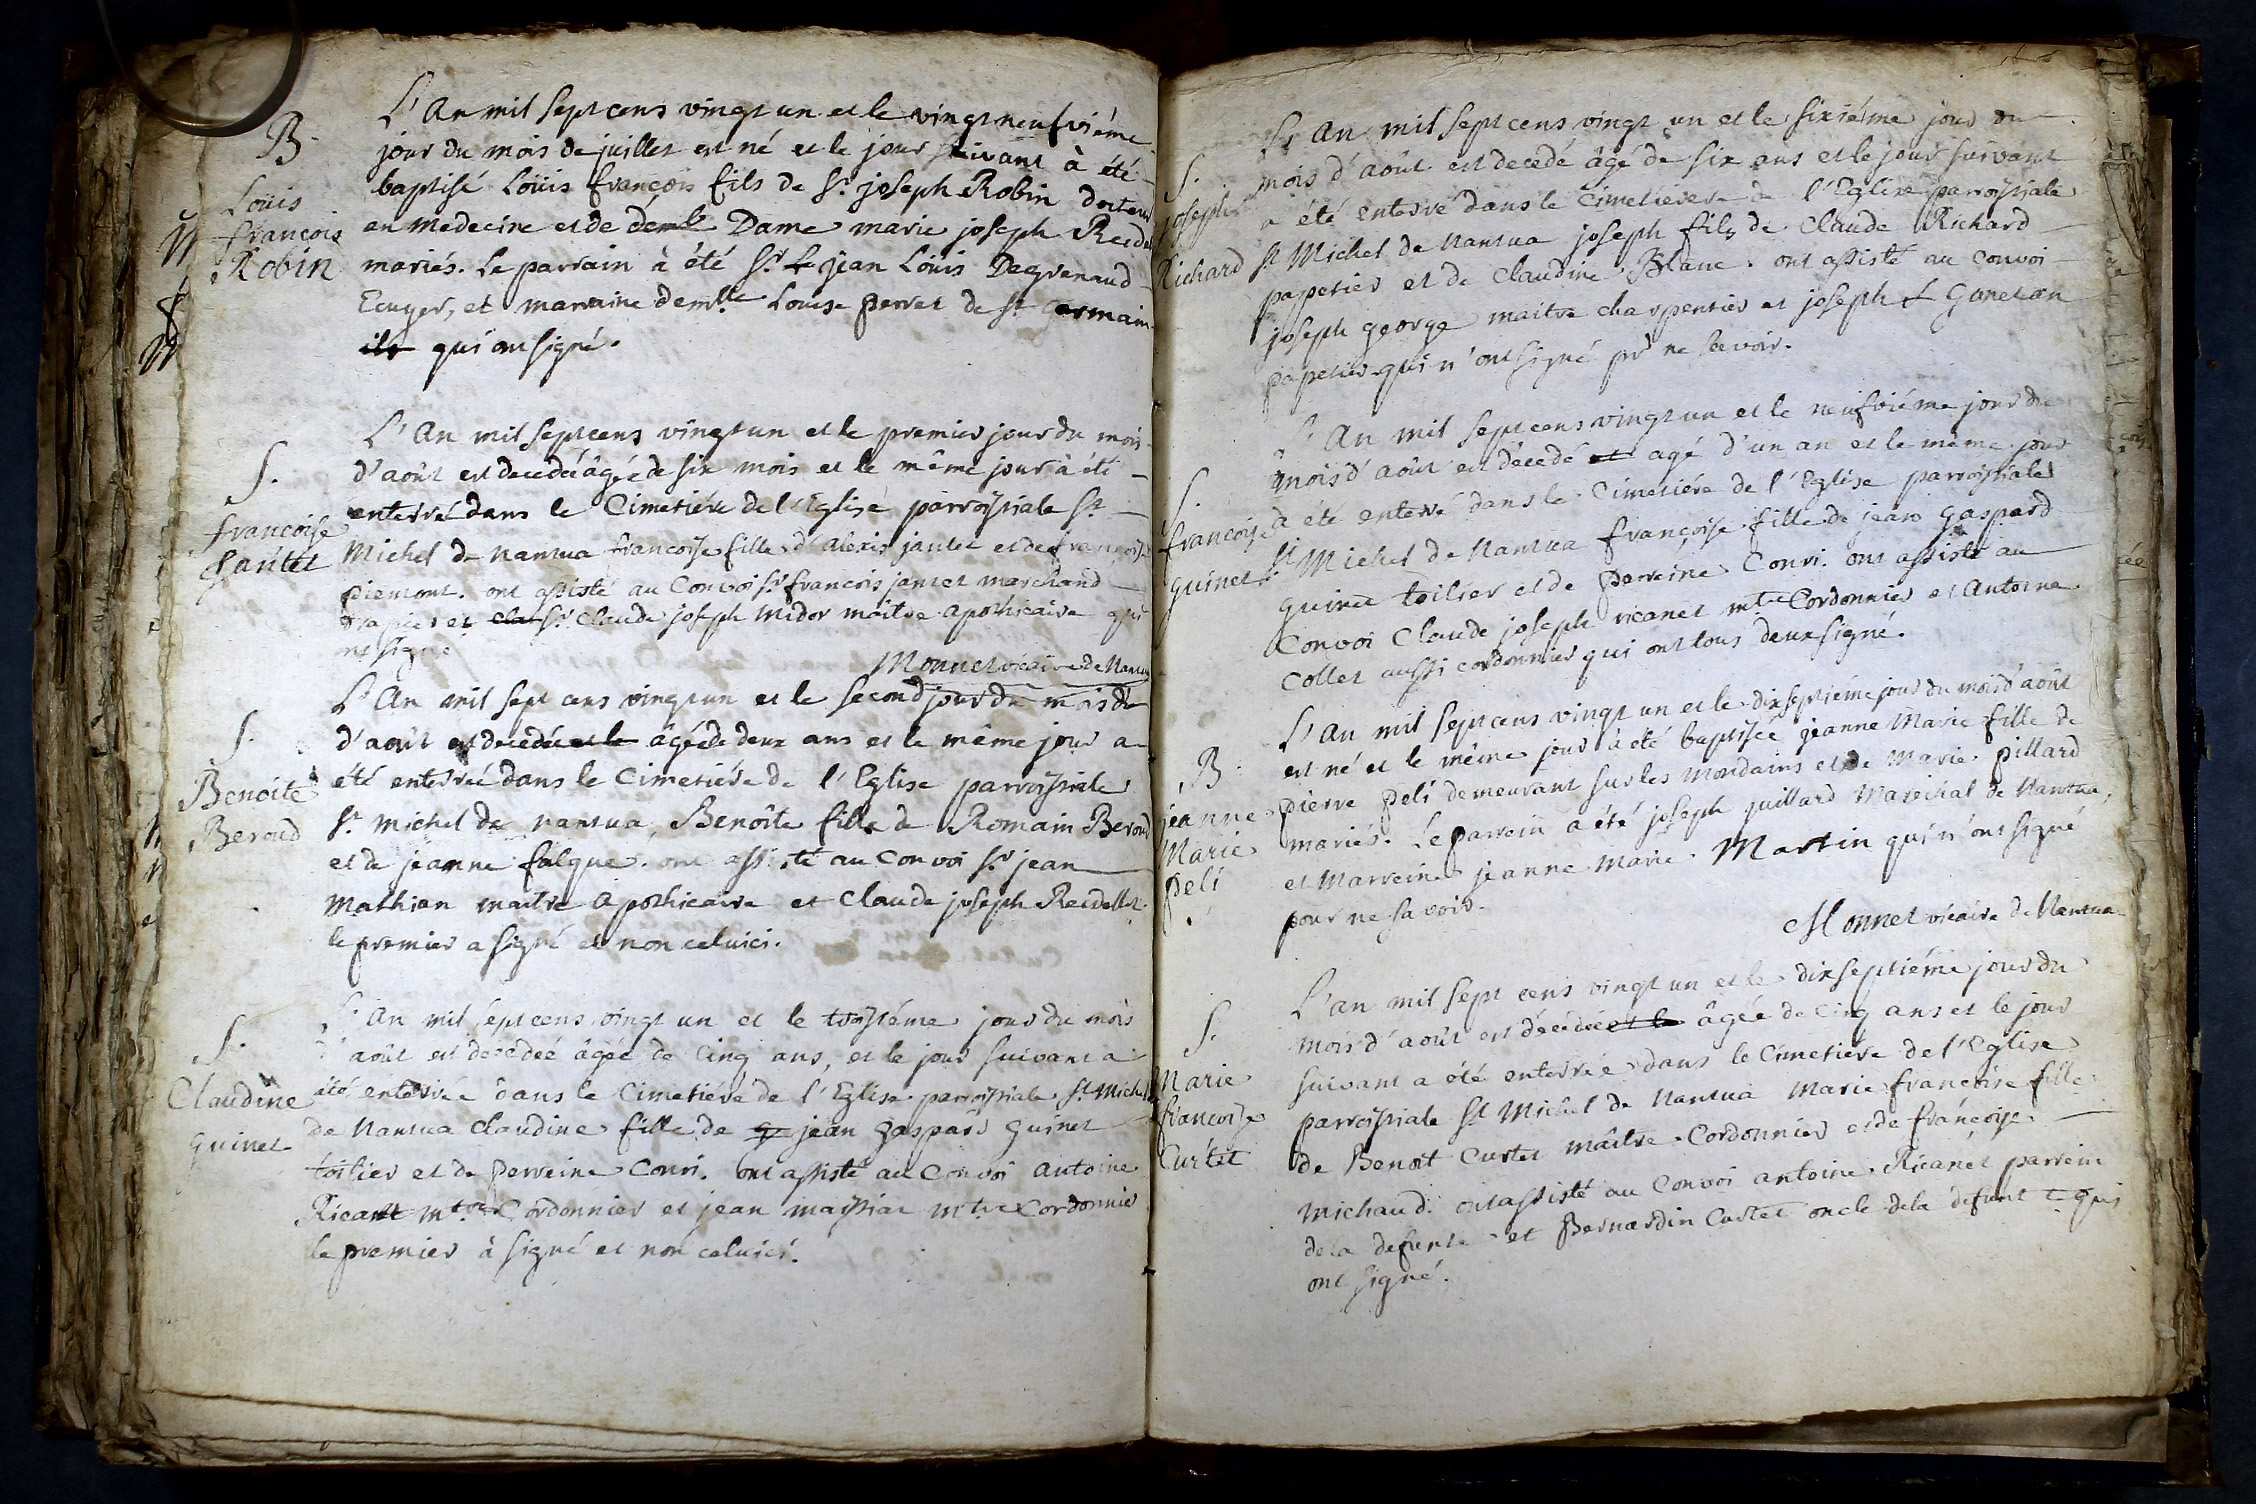 B.
Loüis
françois
Robin
L'An mil sept cens vingt un et le vingt neufviéme
jour du mois de juillet est né et le jour suivant à été
baptisé Loüis françois fils de Sr. joseph Robin docteur
en medecine et de demlle Dame marie joseph Reedel
mariés. Le parrain à été Sr. Le jean Loüis Degrenaud
Ecuyer, et marraine demlle Louise perret de St germain
ils qui ont signé.
S.
francoise
jantet
L'An mil sept cens vingt un et le premier jour du mois
d'août est decedée âgée de six mois et le même jour à été
enterré dans le Cimetière de l'Eglise parroissiale St
Michel de nantua francoise fille d'alexis jantet et de françoise
piemont. ont assisté au Convoi Sr. françois jantet marchand
drapier et cla Sr. Claude joseph midor maitre apothicaire qui
ont signé
Monnet vicaire de Nantua
S.
Benoite
Beroud
L'An mil sept cens vingt un et le second jour du mois du
d'août est decedée et le âgée de deux ans et le même jour a
été enterrée dans le Cimetière de l'Eglise parroissiale
St. michel de nantua, Benoîte fille de Romain Beroud
et de jeanne falque. ont assisté au Convoi Sr. jean
Mathian maitre Apothicaire et Claude joseph Reedellet
le premier a signé et non celuici.
S.
Claudine
Guinet
L'An mil sept cens vingt un et le troisiéme jour du mois
d'août est decedée âgée de Cinq ans, et le jour suivant a
été enterrée dans le Cimetiére de l'Eglise parroissiale St. Michel
de Nantua Claudine fille de g jean gaspard guinet
toilier et de perreine Convi. ont assisté au Convoi antoine
Ricanet mtre Cordonnier et jean massiat mtre Cordonnier
le premier à signé et non celuici.
S.
joseph
Richard
L'An mil sept cens vingt un et le sixiéme jour du
mois d'août est decedé âgé de six ans et le jour suivant
a été enterré dans le Cimetiere de l'Eglise parroissiale
St Michel de Nantua joseph fils de Claude Richard
papetier et de Claudine Blanc. ont assisté au Convoi
joseph george maitre charpentier et joseph Goneton
papetier qui n'ont signé pr ne scavoir.
S.
françoise
guinet
L'An mil sept cens vingt un et le neufviéme jour du
mois d'août est décedé et agé d'un an et le même jour
à été enterré dans le Cimetiére de l'Eglise parroissiale
St Michel de Nantua françoise fille de jean gaspard
guinet toilier et de perreine Convi. ont assisté au
Convoi Claude joseph ricanet mtre Cordonnier et Antoine
Collet aussi cordonnier qui ont tous deux signé.
B.
jeanne
Marie
peli
L'An mil sept cens vingt un et le dixseptiéme jour du mois d'août
est né et le même jour à été baptisée jeanne Marie fille de
pierre peli demeurant sur les mondains et de Marie pillard
mariés. Le parrein a été joseph juillard Maréchal de Nantua,
et Marreine jeanne Marie Martin qui n'ont signé
pour ne savoir.
Monnet vicaire de Nantua
S.
Marie
francoise
Curtet
L'an mil sept cens vingt un et le dixseptiéme jour du
mois d'août est décedée et le âgée de Cinq ans et le jour
suivant a été enterrée dans le Cimetiere de l'Eglise
parroissiale St Michel de Nantua Marie françoise fille
de Benoit Curtet maître Cordonnier et de françoise
michaud. ont assisté au Convoi antoine Ricanet parrein
de la defunte et Bernardin Curtet oncle de la defunte qui
ont signé.